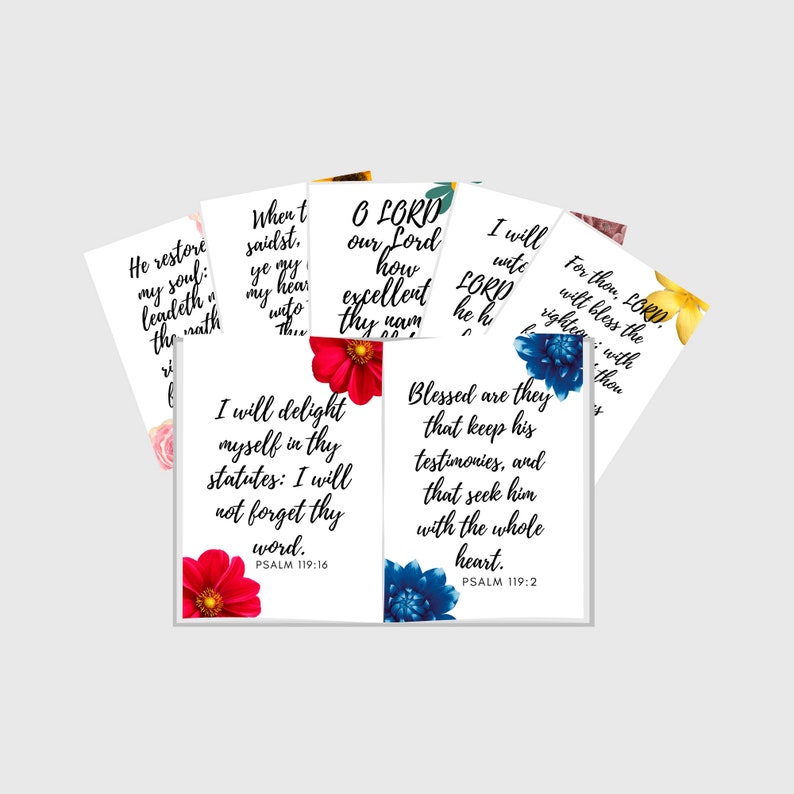 He restore
my soul:
leadeth
the path
When
saidst,
ye my
my hear
unto
O LORD
our Lord
how
excellent
thy nam
I will
unto
LORD
he
For thou, LORD,
wilt bless the
righteous; with
thou
I will delight
myself in thy
statutes: I will
not forget thy
word.
PSALM 119:16
Blessed are they
that keep his
testimonies, and
that seek him
with the whole
heart.
PSALM 119:2